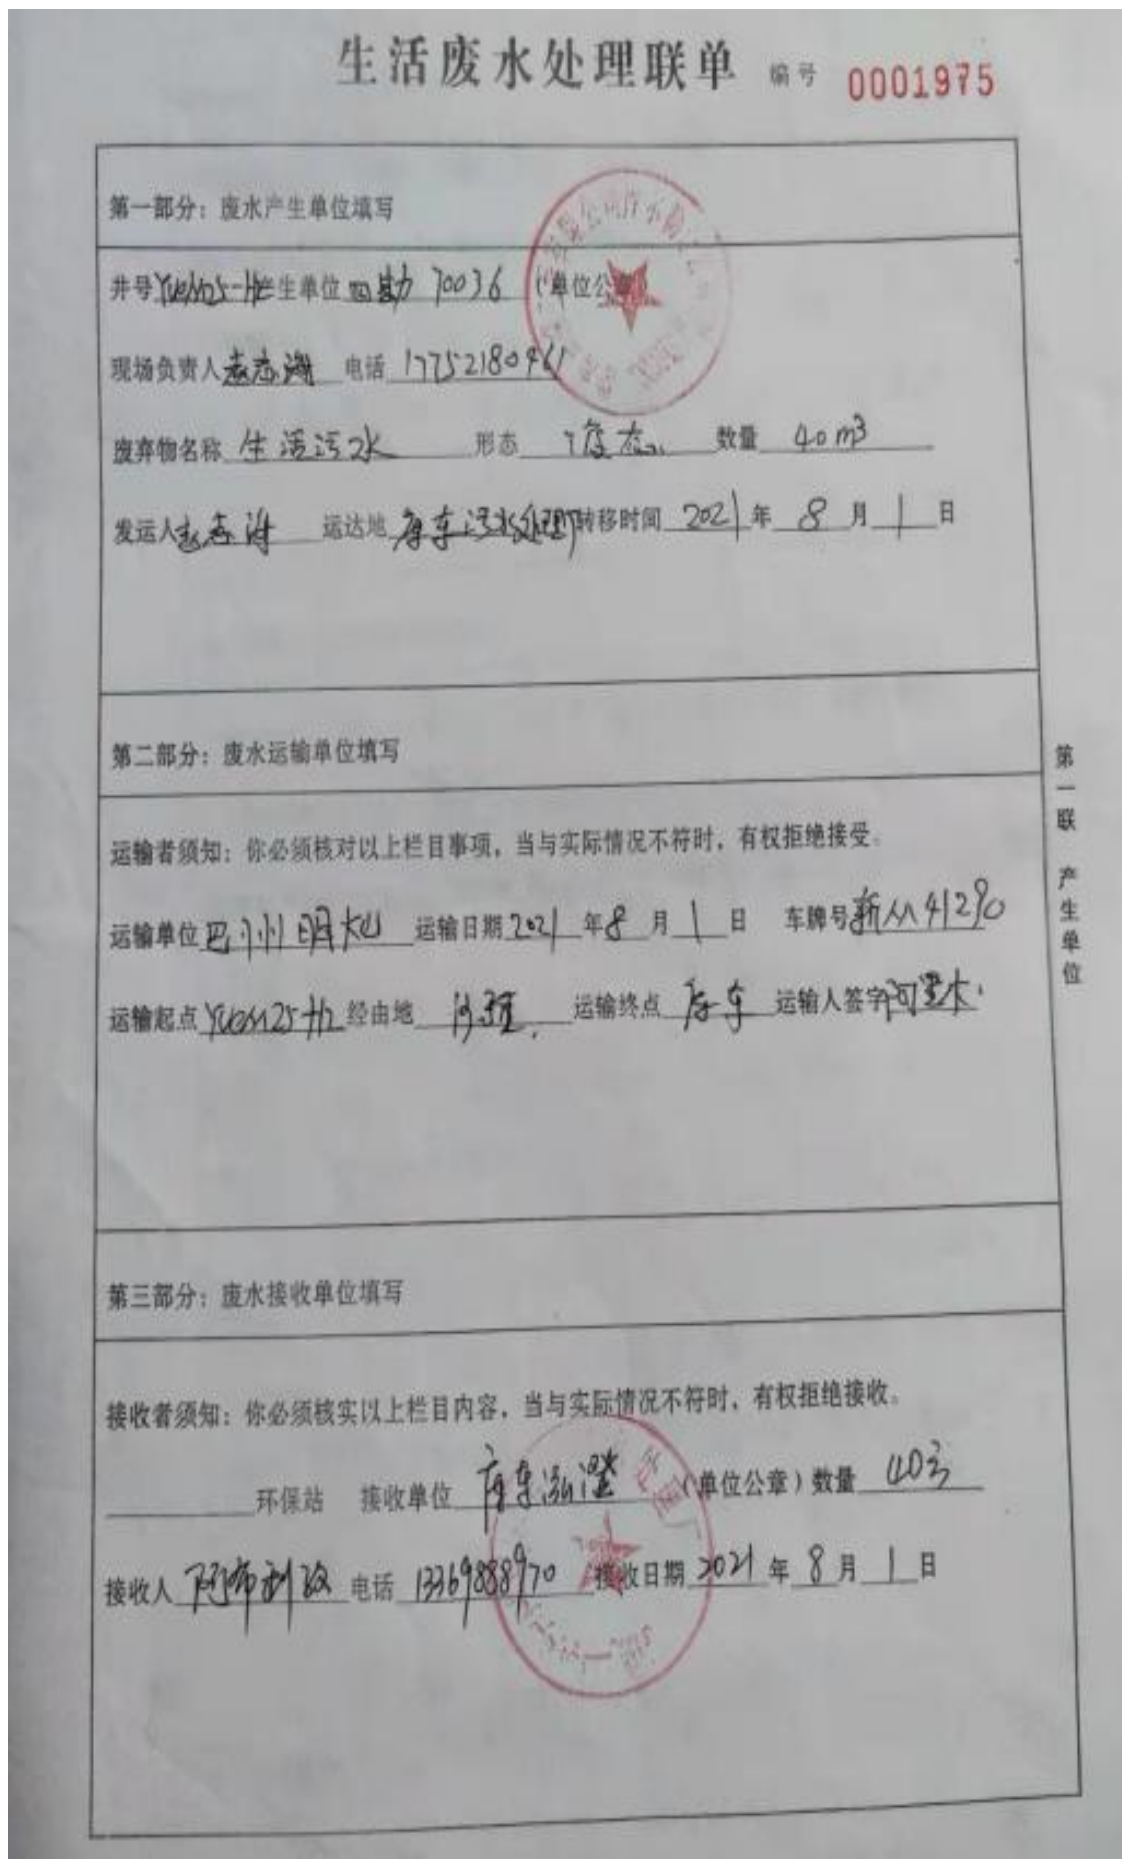 生活废水处理联单 编号 0001975
第一部分：废水产生单位填写
井号 产生单位 四勘 70036 （单位公章）
现场负责人 电话 17752180461
废弃物名称 生活污水 形态 液态 数量 40m³
发运人 运达地 库车污水处理厂 转移时间 2021 年 8 月 1 日
第二部分：废水运输单位填写
运输者须知：你必须核对以上栏目事项，当与实际情况不符时，有权拒绝接受。
运输单位 巴州 运输日期 2021 年 8 月 1 日 车牌号 新 41290
运输起点 YueM25-H2 经由地 沙雅 运输终点 库车 运输人签字 阿里木
第三部分：废水接收单位填写
接收者须知：你必须核实以上栏目内容，当与实际情况不符时，有权拒绝接收。
环保站 接收单位 库车泓澄 （单位公章）数量 40方
接收人 电话 13369888970 接收日期 2021 年 8 月 1 日
第一联 产生单位